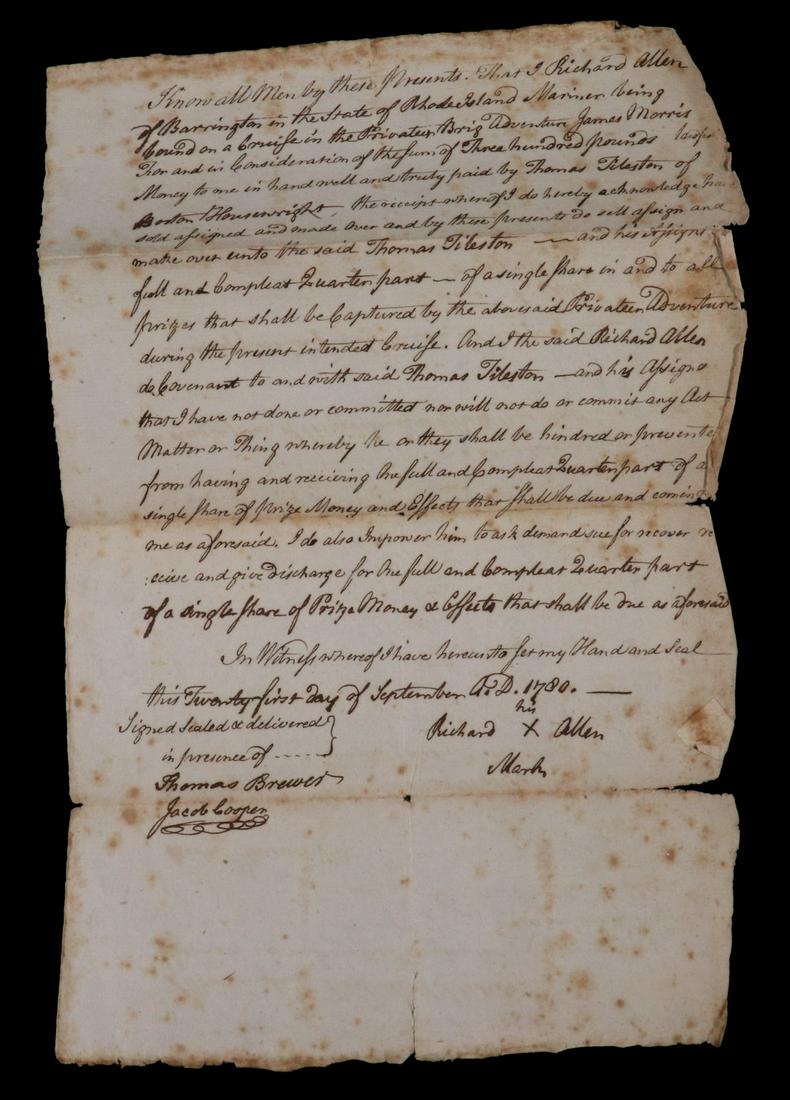 Know all Men by these Presents. That I Richard Allen
of Barrington in the State of Rhode Island Mariner being
bound on a Cruise in the Privateer Brig Adventure James Morris
For and in Consideration of the sum of Three hundred pounds
Money to me in hand well and truly paid by Thomas Tileston of
Boston Housewright, the receipt whereof I do hereby acknowledge have
sold assigned and made over and by these presents do sell assign and
make over unto the said Thomas Tileston — and his Assigns
full and Compleat Quarter part — of a single Share in and to all
prizes that shall be Captured by the abovesaid Privateer Adventure
during the present intended Cruise. And I the said Richard Allen
do Covenant to and with said Thomas Tileston — and his Assigns
that I have not done or committed nor will not do or commit any Act
Matter or Thing whereby he or they shall be hindred or prevente
from having and receiving the full and Compleat Quarter part of a
single Share of prize Money and Effects that shall be due and coming
me as aforesaid. I do also Impower him to ask demand sue for recover re
:ceive and give Discharge for the full and Compleat Quarter part
of a single Share of Prize Money & Effects that shall be due as aforesaid
In Witness whereof I have hereunto set my Hand and Seal
this Twenty first day of September A.D. 1780. —
Signed Sealed & delivered
in presence of -----
Thomas Brewer
Jacob Cooper
his
Richard X Allen
Mark